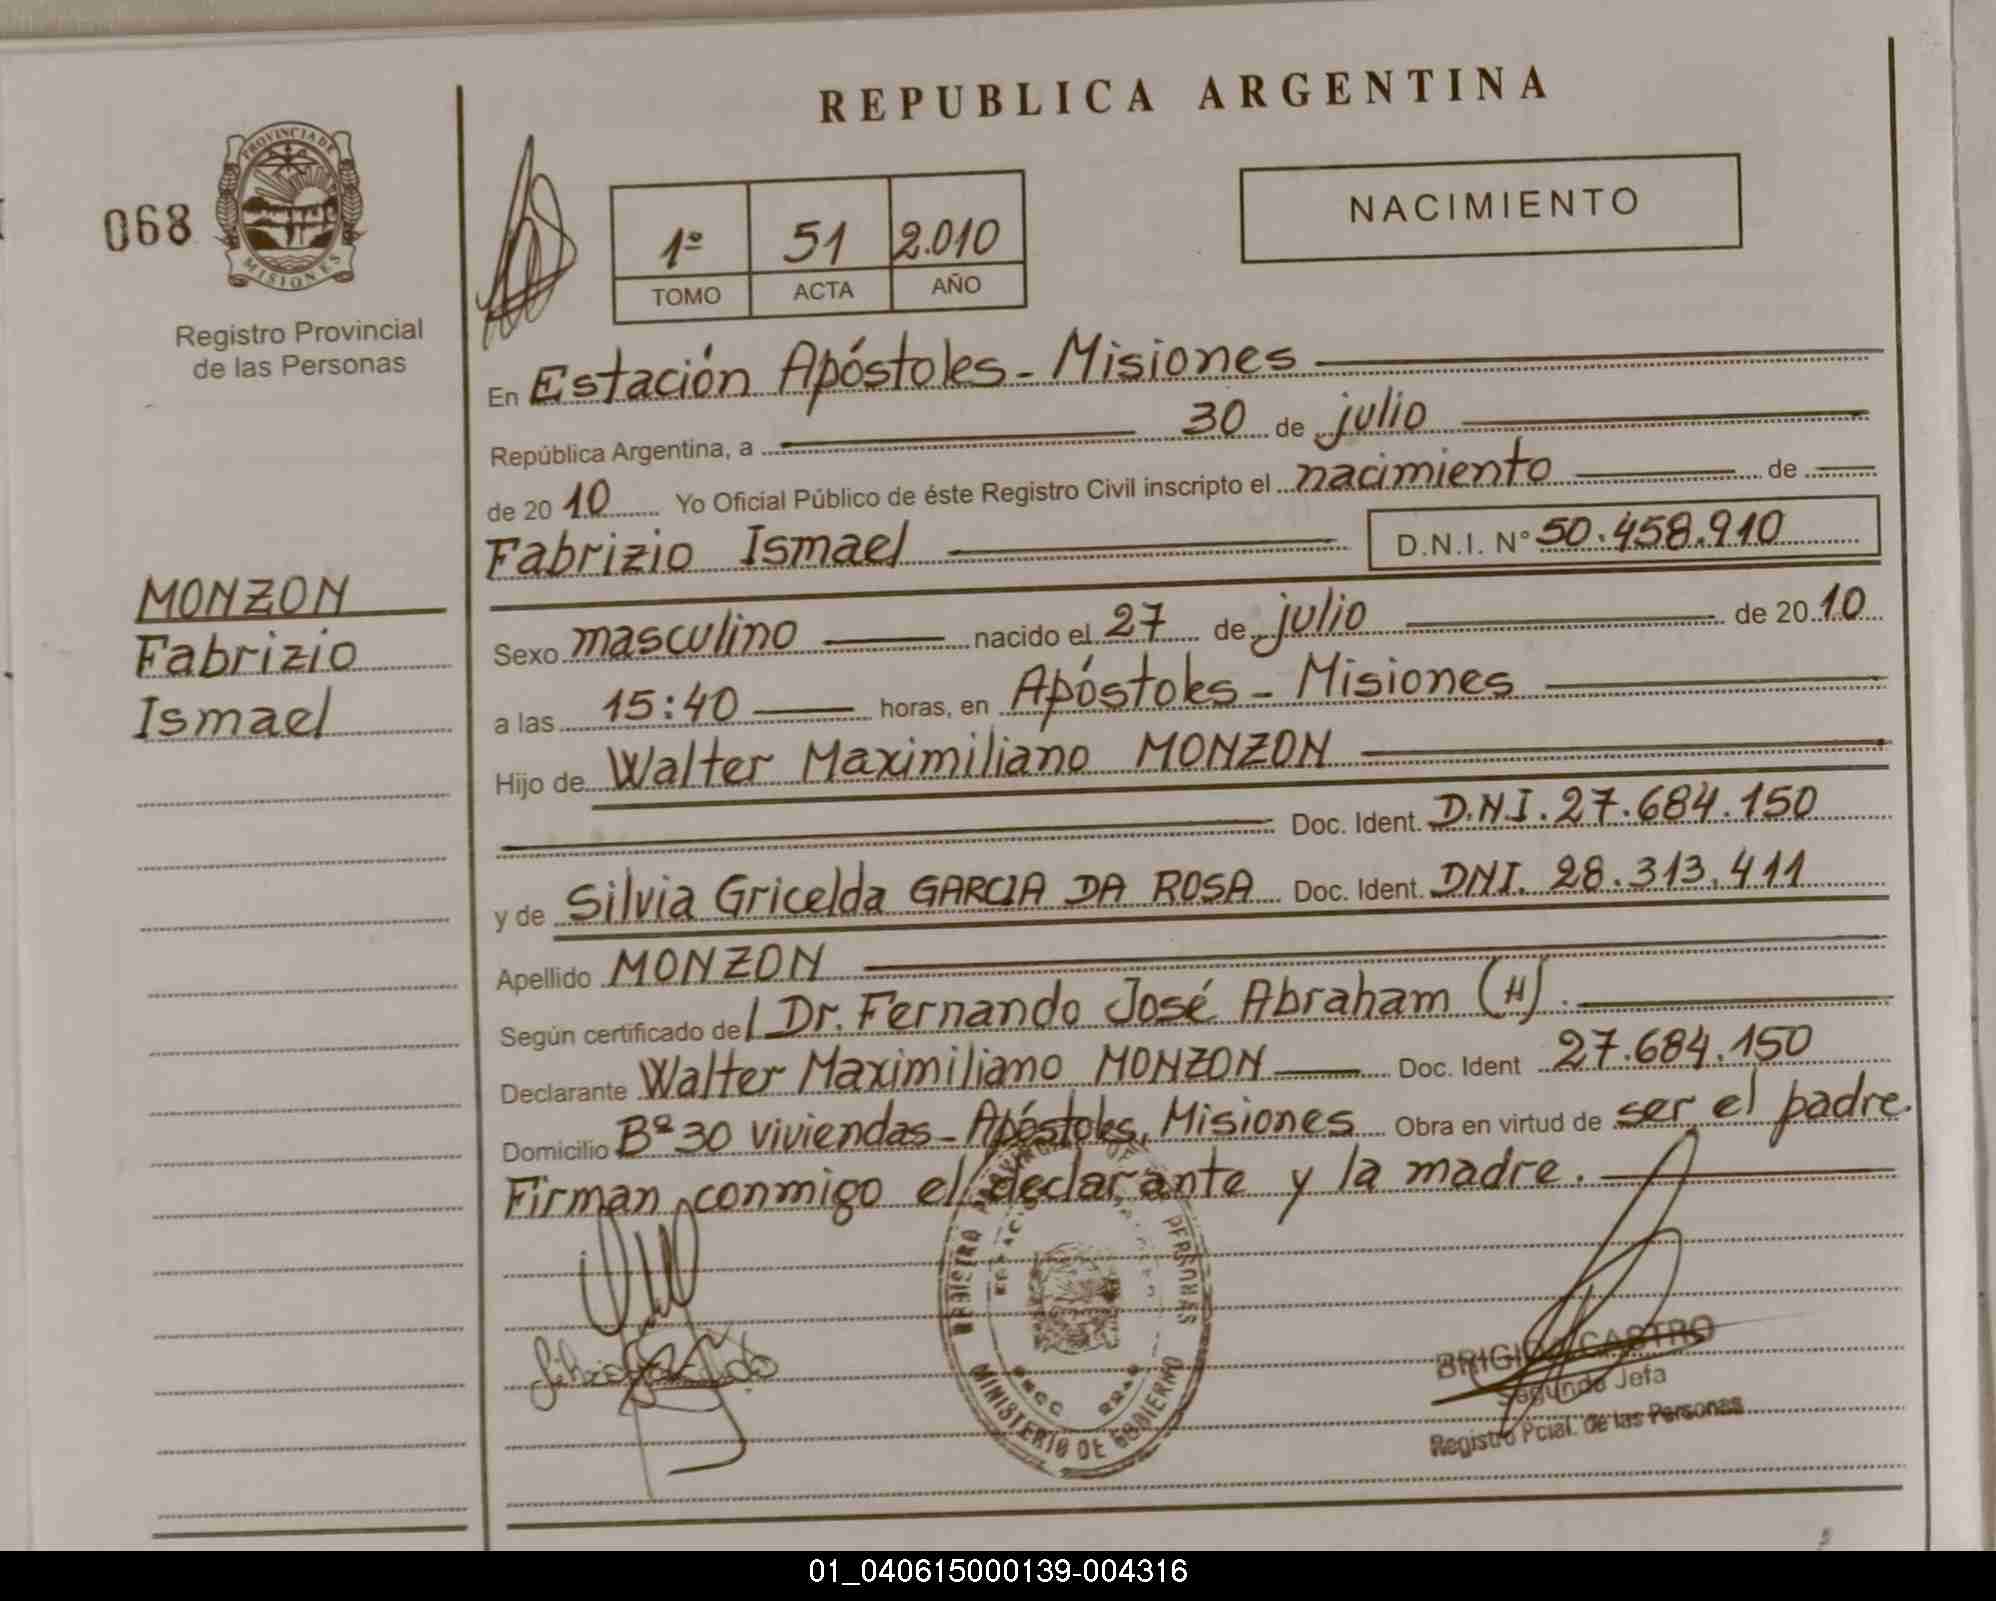 REPUBLICA ARGENTINA
PROVINCIA DE
MISIONES
068
Registro Provincial
de las Personas
1º 51 2.010
TOMO ACTA AÑO
NACIMIENTO
En Estación Apóstoles - Misiones
República Argentina, a 30 de julio
de 2010 Yo Oficial Público de éste Registro Civil inscripto el nacimiento de
Fabrizio Ismael D.N.I. N° 50.458.910
MONZON
Fabrizio
Ismael
Sexo masculino nacido el 27 de julio de 2010
a las 15:40 horas, en Apóstoles - Misiones
Hijo de Walter Maximiliano MONZON
Doc. Ident. D.N.I. 27.684.150
y de Silvia Gricelda GARCIA DA ROSA Doc. Ident. DNI. 28.313.411
Apellido MONZON
Según certificado del Dr. Fernando José Abraham (H).
Declarante Walter Maximiliano MONZON Doc. Ident 27.684.150
Domicilio Bº 30 viviendas - Apóstoles, Misiones Obra en virtud de ser el padre.
Firman conmigo el declarante y la madre.
REGISTRO PROVINCIAL DE LAS PERSONAS
MINISTERIO DE GOBIERNO
CASTRO
Segundo Jefa
Registro Pcial. de las Personas
01_040615000139-004316